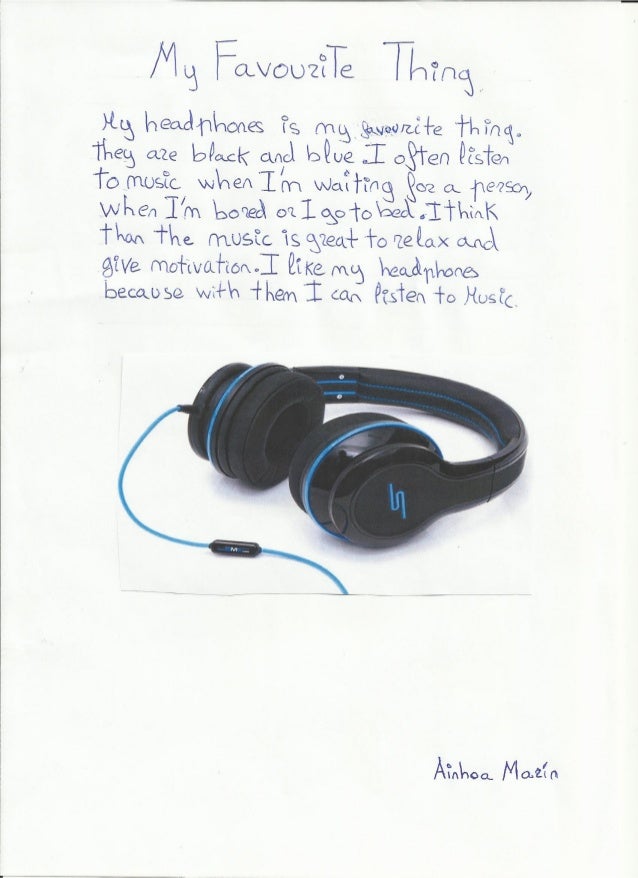 My Favourite Thing
My headphones is my favourite thing.
they are black and blue. I often listen
to music when I'm waiting for a person,
when I'm bored or I go to bed. I think
than the music is great to relax and
give motivation. I like my headphones
because with them I can listen to Music.
Ainhoa Marín